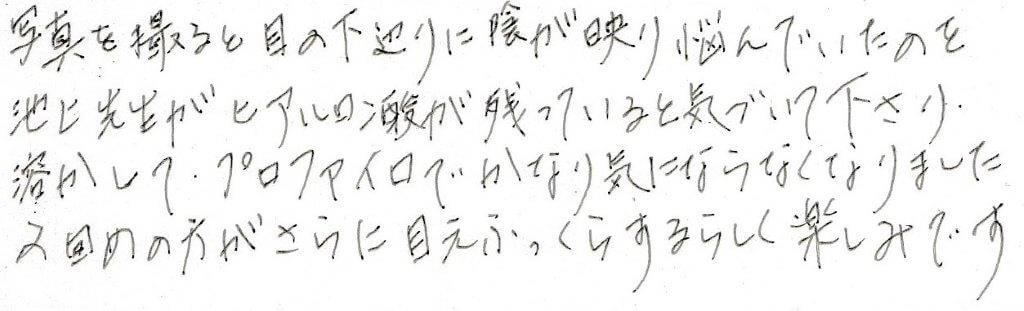 写真を撮ると目の下辺りに陰が映り悩んでいたのを
池上先生がヒアルロン酸が残っていると気づいて下さり.
溶かして.プロファイロでかなり気にならなくなりました
2回めの方がさらに目元ふっくらするらしく楽しみです